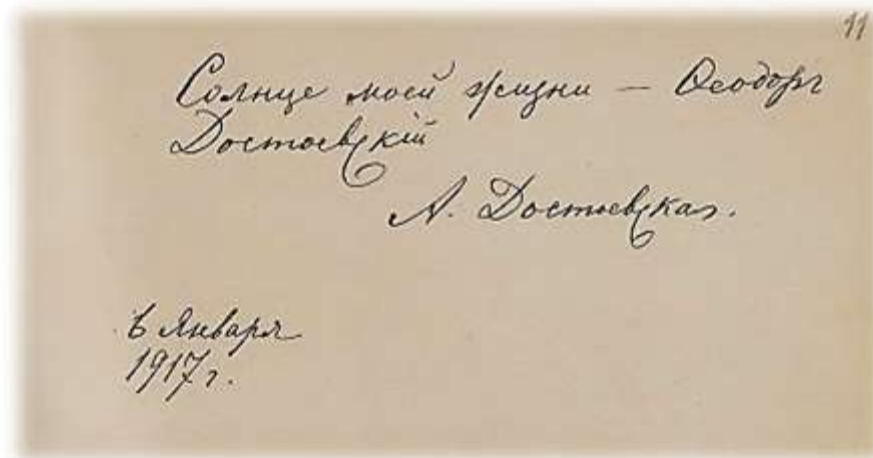 11
Солнце моей жизни — Ѳеодоръ
Достоевскій
А. Достоевская.
6 Января
1917 г.